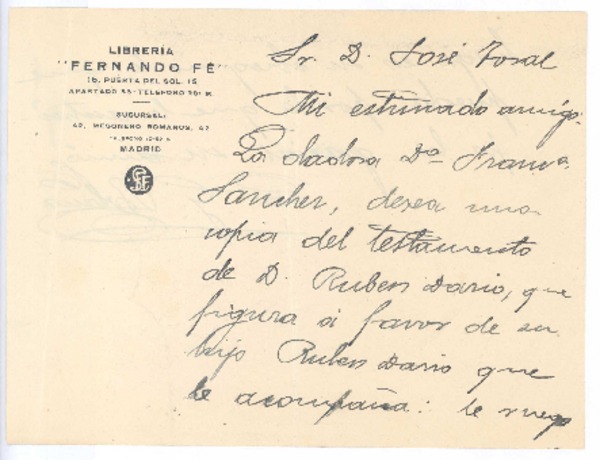 LIBRERÍA
"FERNANDO FÉ"
15, PUERTA DEL SOL, 15
SUCURSAL:
MESONERO ROMANOS, 42
MADRID
Sr. D. José Toral
Mi estimado amigo:
La dadora Dª Franca
Sanchez, desea una
copia del testamento
de D. Ruben Dario, que
figura á favor de su
hijo Ruben Dario que
le acompaña: le ruego